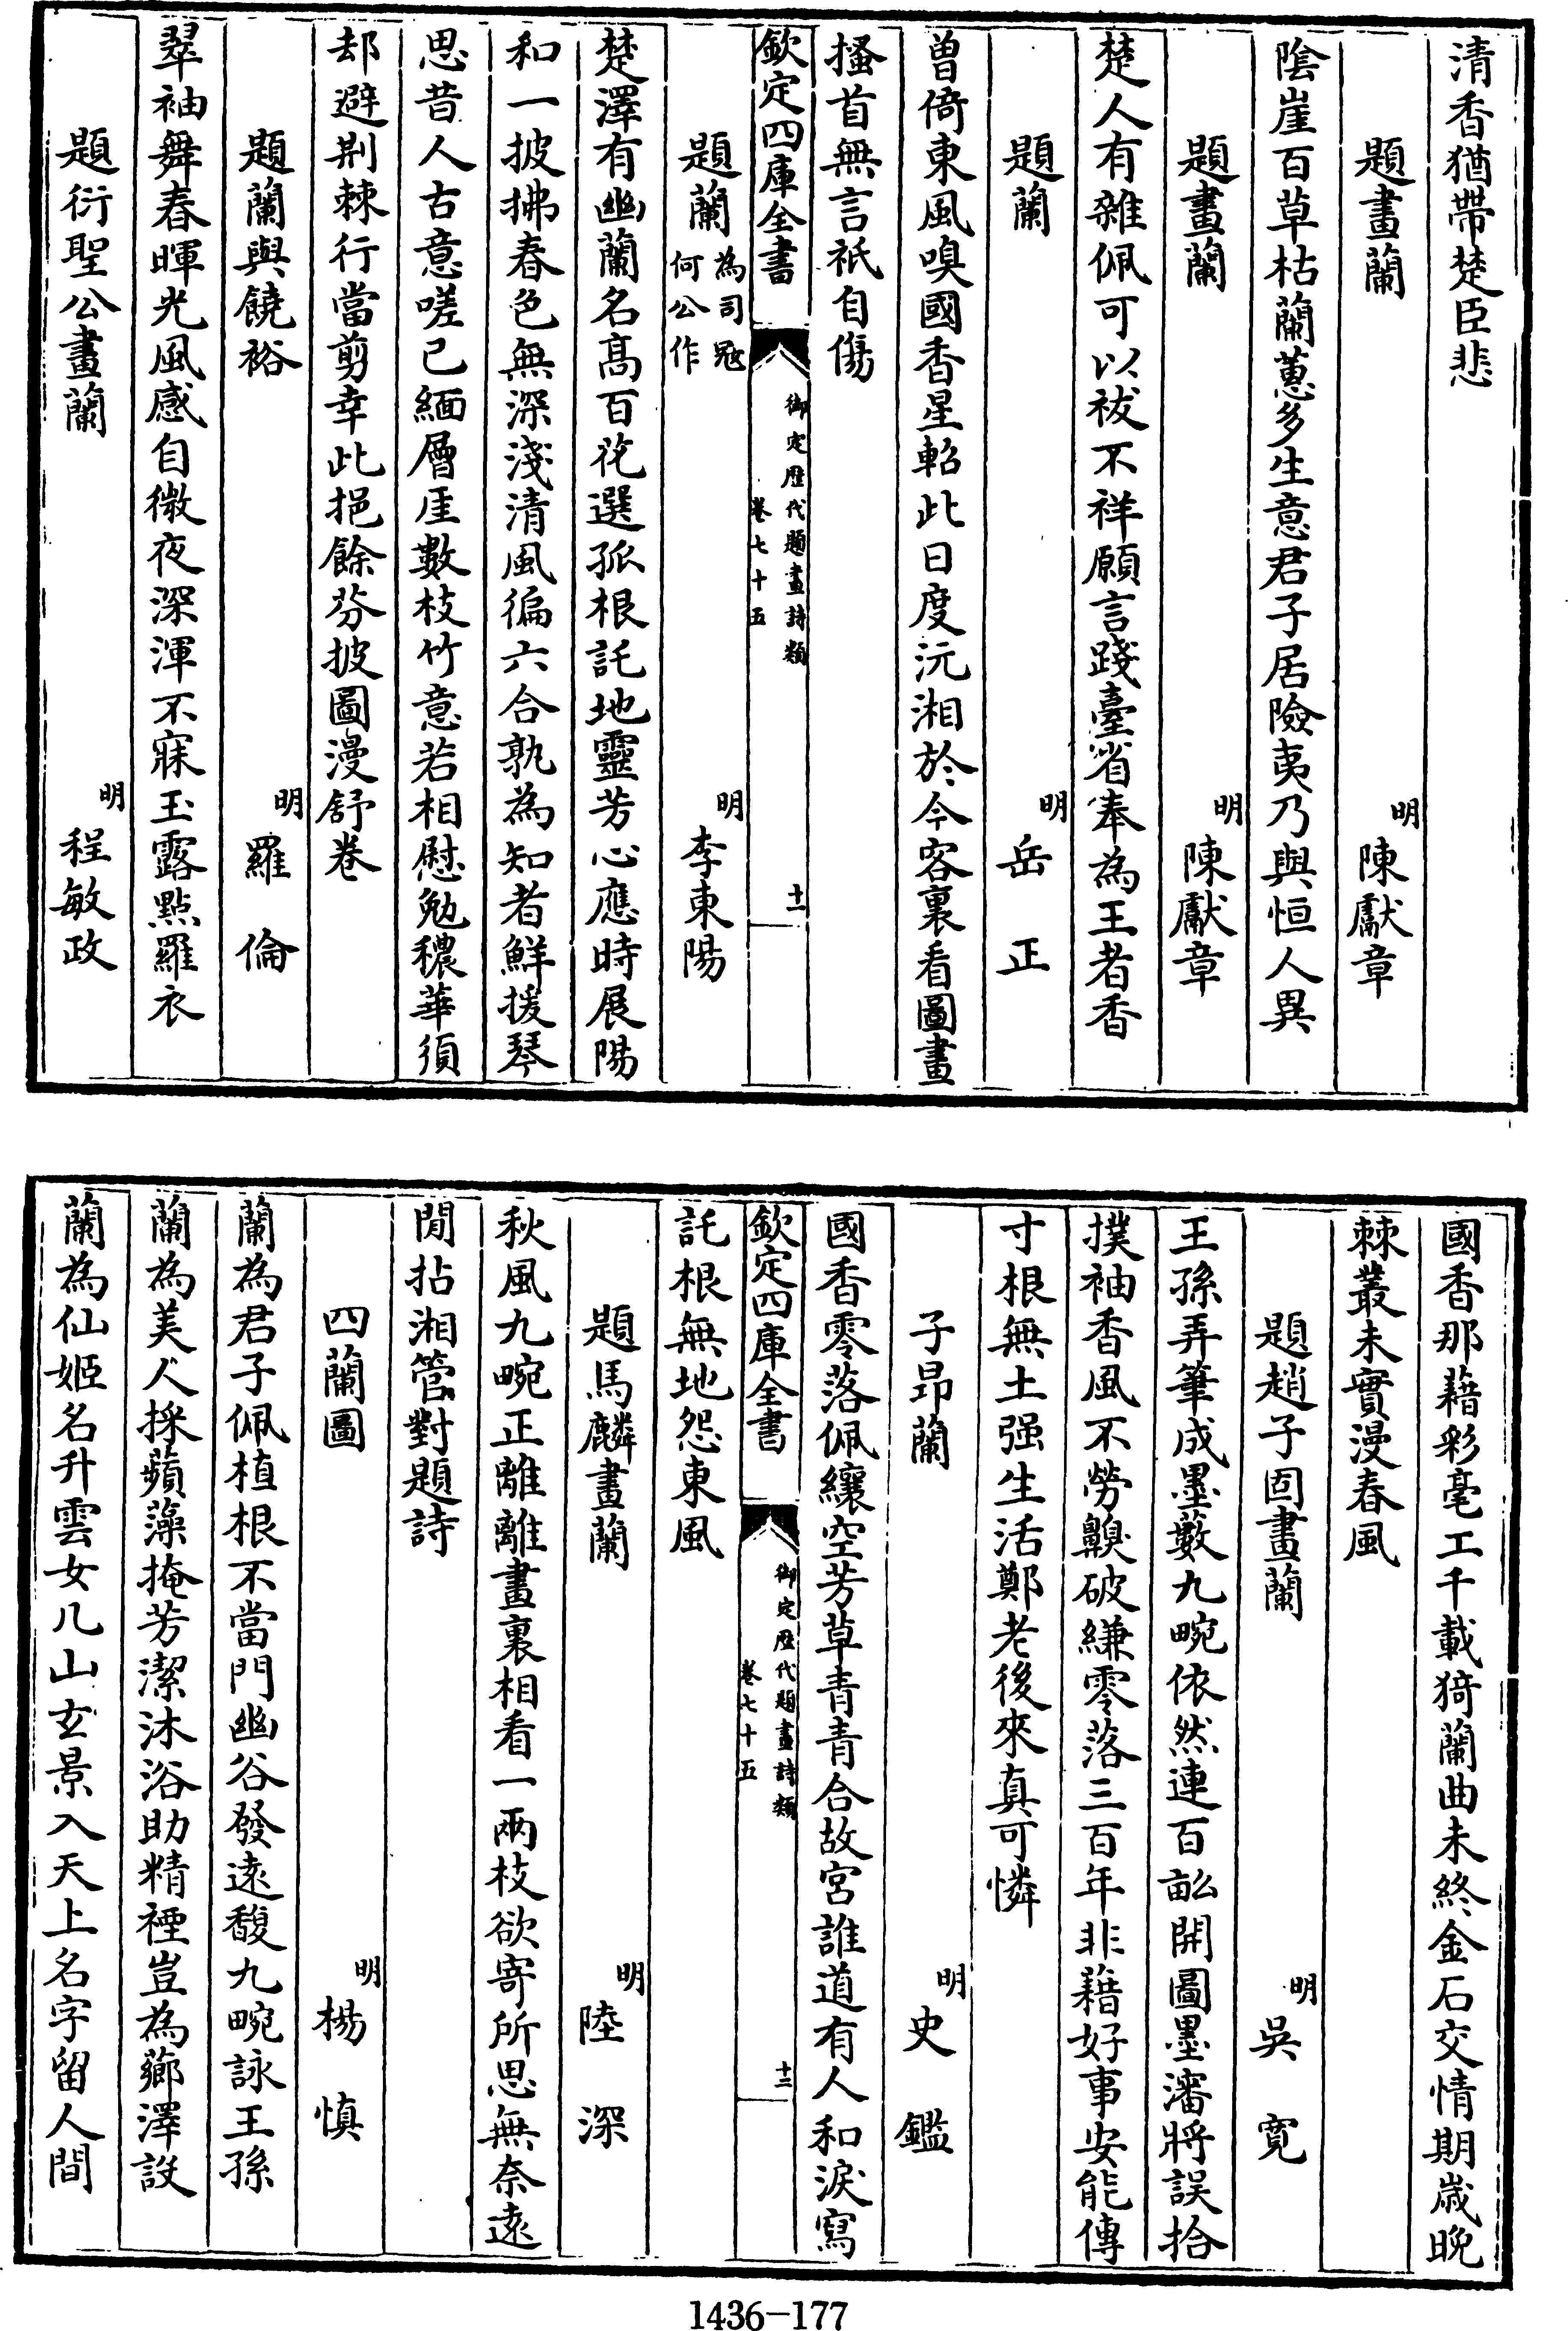 清香猶帶楚臣悲
題畫蘭
明
陳獻章
陰崖百草枯蘭蕙多生意君子居險夷乃與恒人異
題畫蘭
明
陳獻章
楚人有雜佩可以祓不祥願言踐臺省奉為王者香
題蘭
明
岳正
曾倚東風嗅國香星軺此日度沅湘於今客裏看圖畫
搔首無言祇自傷
欽定四庫全書
御定歷代題畫詩類
卷七十五
十一
題蘭
為司寇
何公作
明
李東陽
楚澤有幽蘭名高百花選孤根託地靈芳心應時展陽
和一披拂春色無深淺清風徧六合孰為知者鮮援琴
思昔人古意嗟已緬層厓數枝竹意若相慰勉穠華須
却避荆棘行當剪幸此挹餘芬披圖漫舒卷
題蘭與饒裕
明
羅倫
翠袖舞春暉光風感自微夜深渾不寐玉露點羅衣
題衍聖公畫蘭
明
程敏政
國香那藉彩毫工千載猗蘭曲未終金石交情期歲晚
棘叢未實漫春風
題趙子固畫蘭
明
吳寬
王孫弄筆成墨藪九畹依然連百畝開圖墨瀋將誤拾
撲袖香風不勞齅破縑零落三百年非藉好事安能傳
寸根無土强生活鄭老後來真可憐
子昂蘭
明
史鑑
國香零落佩纕空芳草青青合故宮誰道有人和淚寫
託根無地怨東風
欽定四庫全書
御定歷代題畫詩類
卷七十五
十二
題馬麟畫蘭
明
陸深
秋風九畹正離離畫裏相看一兩枝欲寄所思無奈遠
閒拈湘管對題詩
四蘭圖
明
楊慎
蘭為君子佩植根不當門幽谷發遠馥九畹詠王孫
蘭為美人採蘋藻掩芳潔沐浴助精禋豈為薌澤設
蘭為仙姬名升雲女几山玄景入天上名字留人間
1436-177